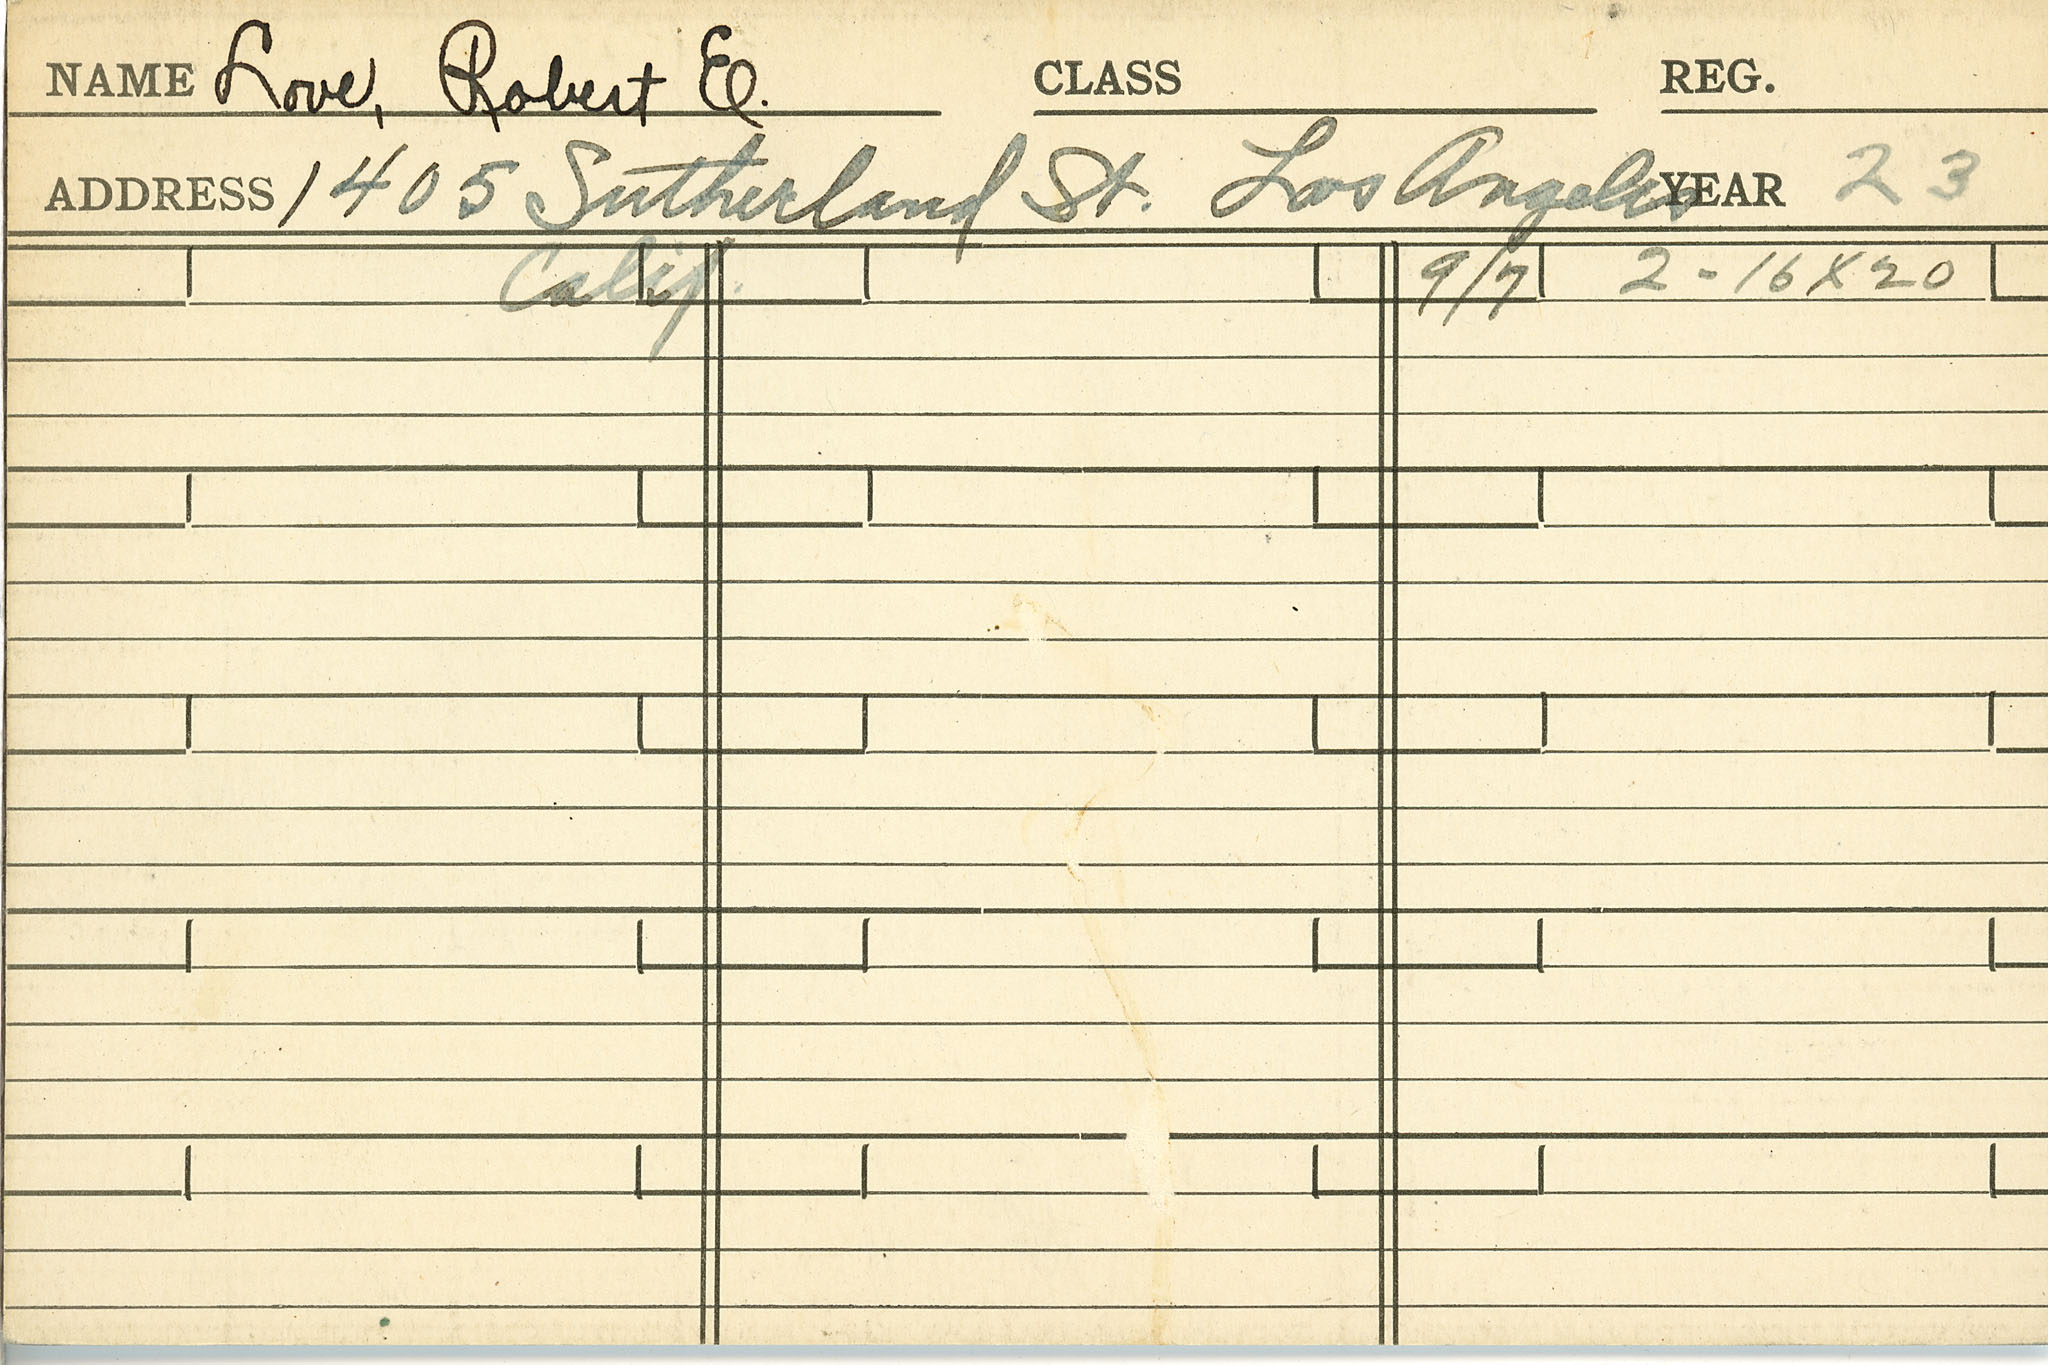 NAME Love, Robert E. CLASS REG.
ADDRESS 1405 Sutherland St. Los Angeles YEAR 23
Calif. 9/7 2-16X20